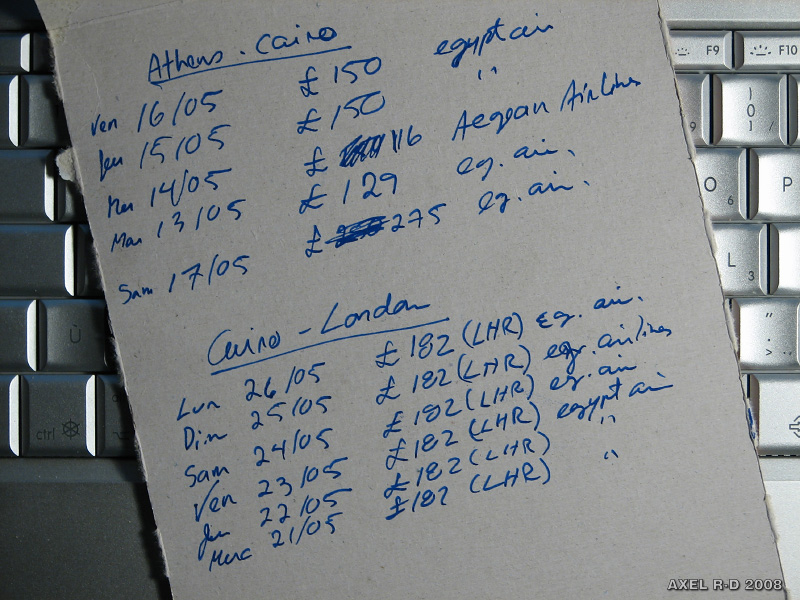 Athens - Cairo
Ven 16/05 £ 150 egypt air
Jeu 15/05 £ 150 "
Mer 14/05 £ 116 Aegean Airlines
Mar 13/05 £ 129 eg. air.
Sam 17/05 £ 275 eg. air.
Cairo - London
Lun 26/05 £ 182 (LHR) eg. air.
Dim 25/05 £ 182 (LHR) egy. airlines
Sam 24/05 £ 182 (LHR) eg. air
Ven 23/05 £ 182 (LHR) egypt air
Jeu 22/05 £ 182 (LHR) "
Merc 21/05 £ 182 (LHR) "
F9
F10
)
0
O 6
P
L 3
"
> .
Ù
ctrl
AXEL R-D 2008